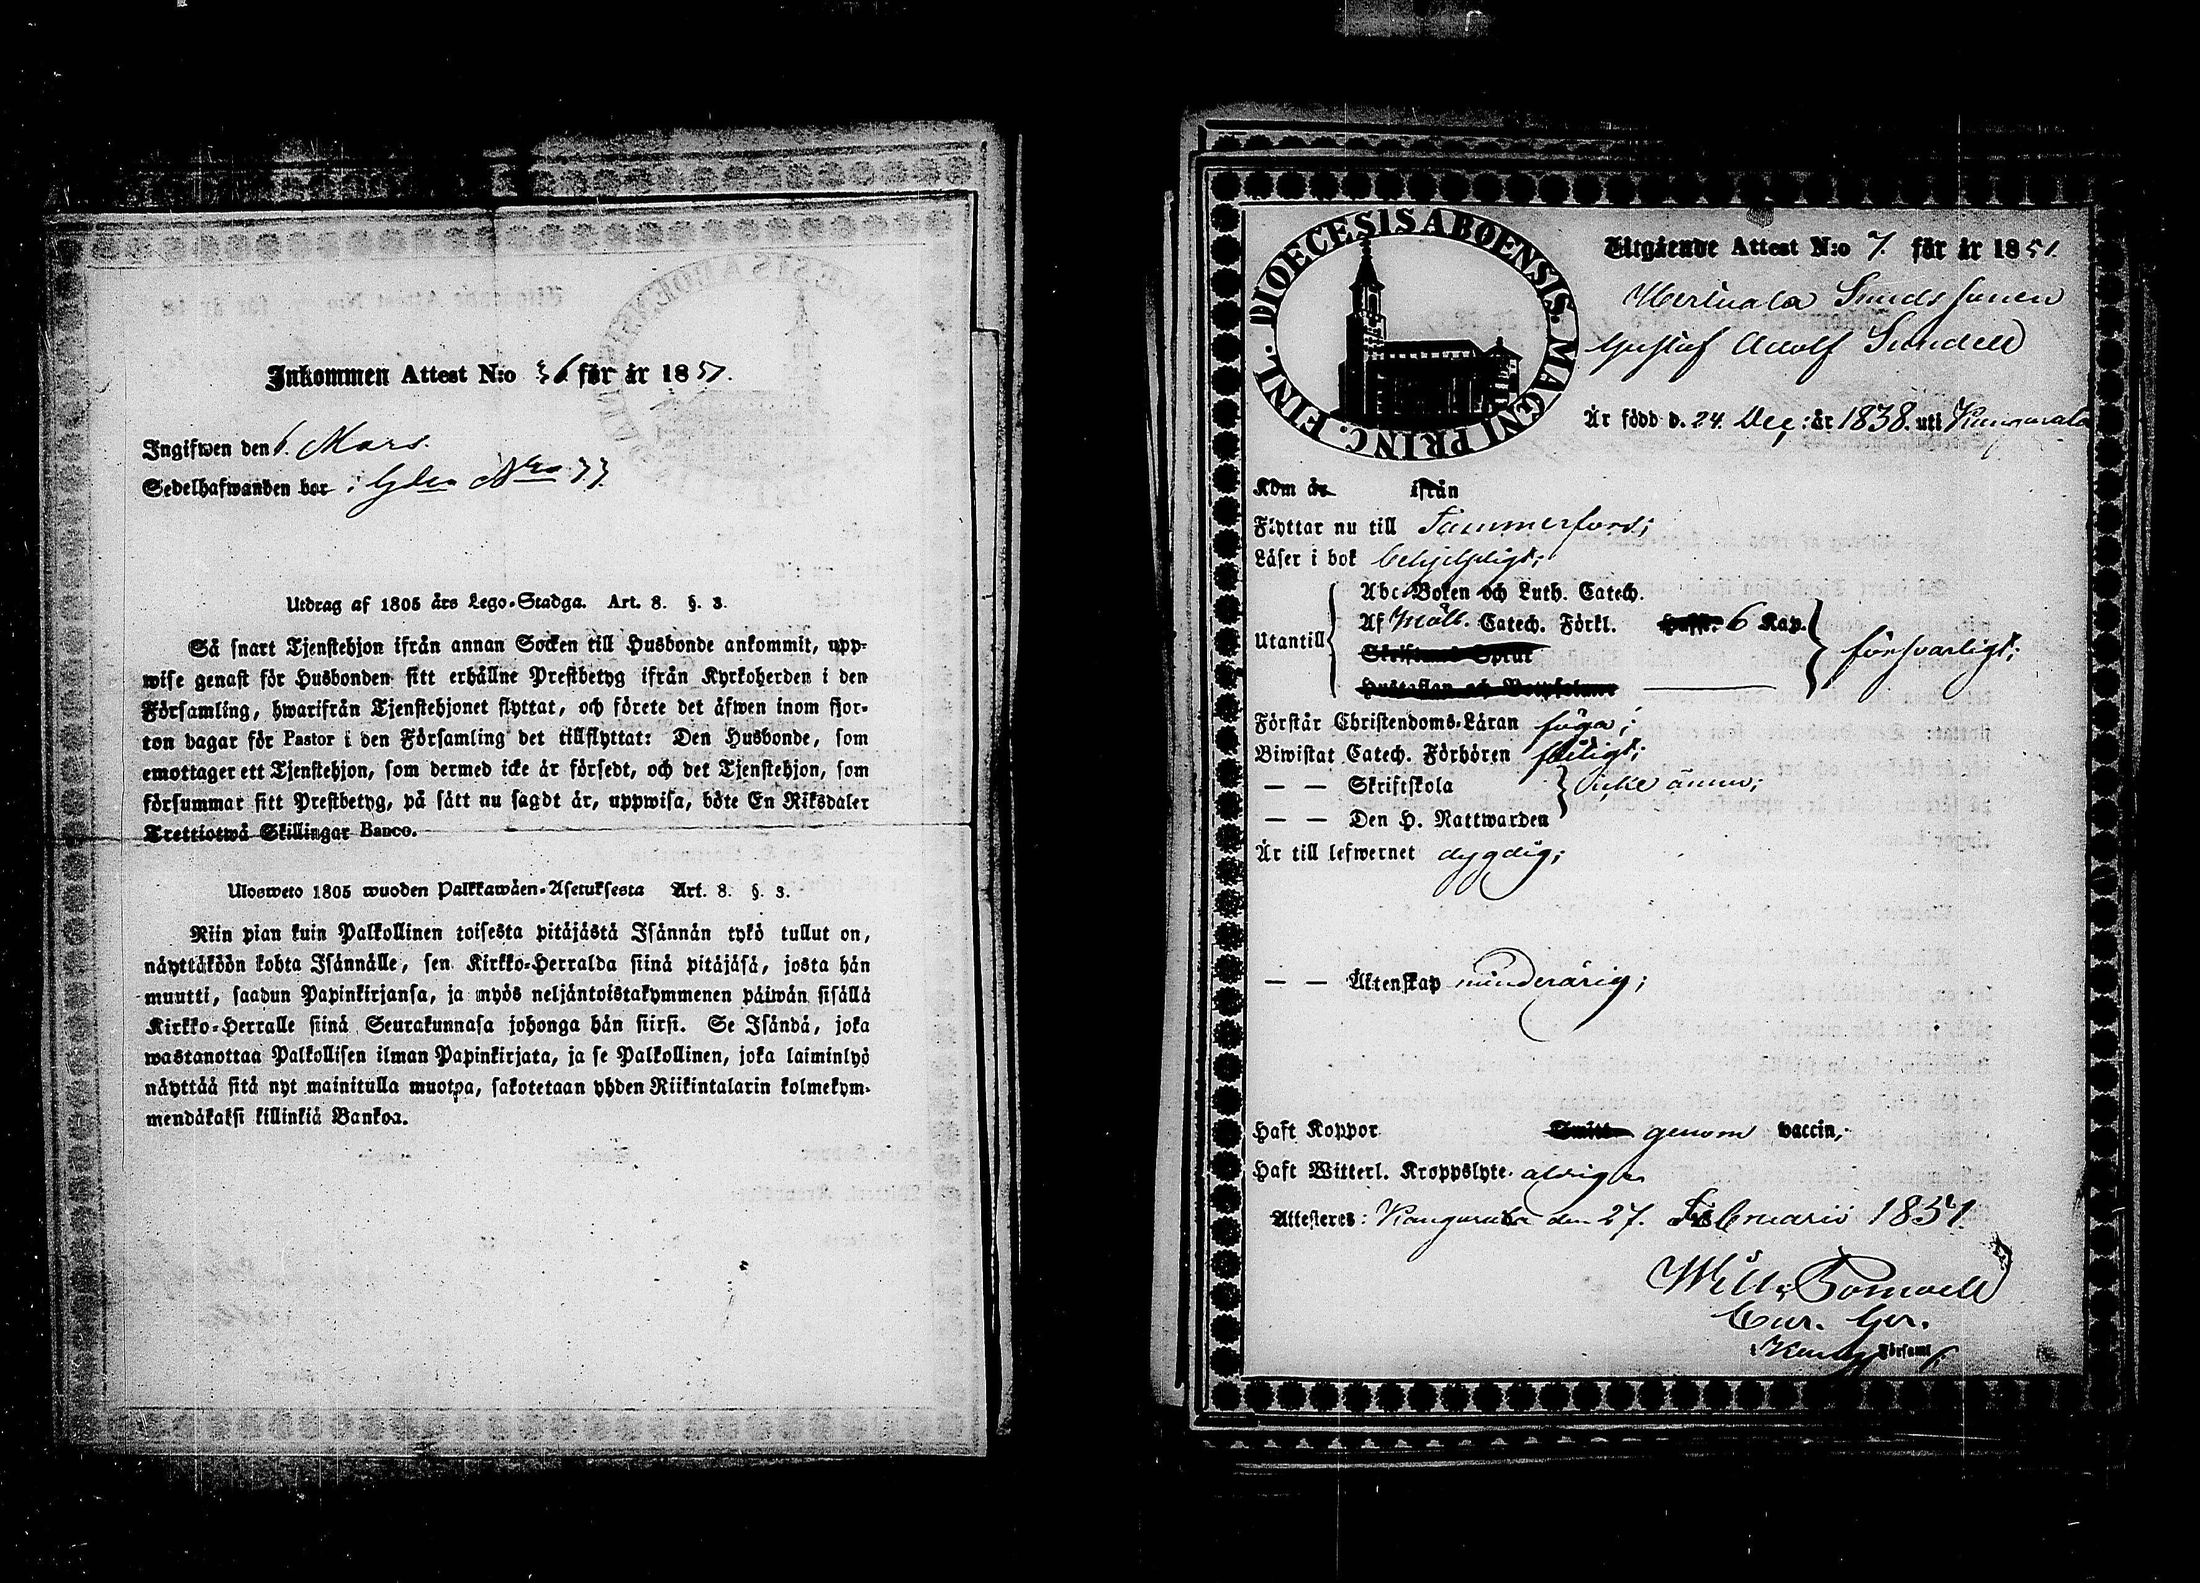 Inkommen Attest N:o 36 för år 1851.
Ingifwen den 6. Mars.
Sedelhafwanden bor i Gden Nro 77
Utdrag af 1805 års Lego-Stadga. Art. 8. §. 3.
Så snart Tjenstehjon ifrån annan Socken till Husbonde ankommit, upp-
wise genast för Husbonden sitt erhållne Prestbetyg ifrån Kyrkoherden i den
Församling, hwarifrån Tjenstehjonet flyttat, och förete det äfwen inom fjor-
ton dagar för Pastor i den Församling det tillflyttat: Den Husbonde, som
emottager ett Tjenstehjon, som dermed icke är försedt, och det Tjenstehjon, som
försummar sitt Prestbetyg, på sätt nu sagdt är, uppwisa, böte En Riksdaler
Trettiotwå Skillingar Banco.
Ulosweto 1805 wuoden Palkkawäen-Asetuksesta Art. 8. §. 3.
Niin pian kuin Palkollinen toisesta pitäjästä Isännän tykö tullut on,
näyttäköön kohta Isännälle, sen Kirkko-Herralda siinä pitäjäsä, josta hän
muutti, saadun Papinkirjansa, ja myös neljäntoistakymmenen päiwän sisällä
Kirkko-Herralle siinä Seurakunnasa johonga hän siirsi. Se Isändä, joka
wastanottaa Palkollisen ilman Papinkirjata, ja se Palkollinen, joka laiminlyö
näyttää sitä nyt mainitulla muotoa, sakotetaan yhden Riikintalarin kolmekym-
mendäkaksi killinkiä Bankoa.
DIOECESIS ABOENSIS. MAGNI PRINC. FINL.
Utgående Attest N:o 7. för år 1851.
Gustaf Adolf Sundell
Är född d. 24. Dec: år 1838. uti Kangasala
Kom år ifrån
Flyttar nu till Tammerfors;
Läser i bok behjelpligt;
Abc-Boken och Luth. Catech.
Utantill Af Möll. Catech. Förkl. 6 Kap. försvarligt;
Skriftens Språk
Hustaflan och Botpsalmer
Förstår Christendoms-Läran föga;
Biwistat Catech. Förhören flitigt;
— — Skriftskola icke ännu;
— — Den H. Nattwarden
Är till lefwernet dygdig;
— — Äktenskap minderårig;
Haft Koppor genom vaccin;
Haft Witterl. Kroppslyte aldrig
Attesteres: Kangasala den 27. Februarii 1851.
Församl